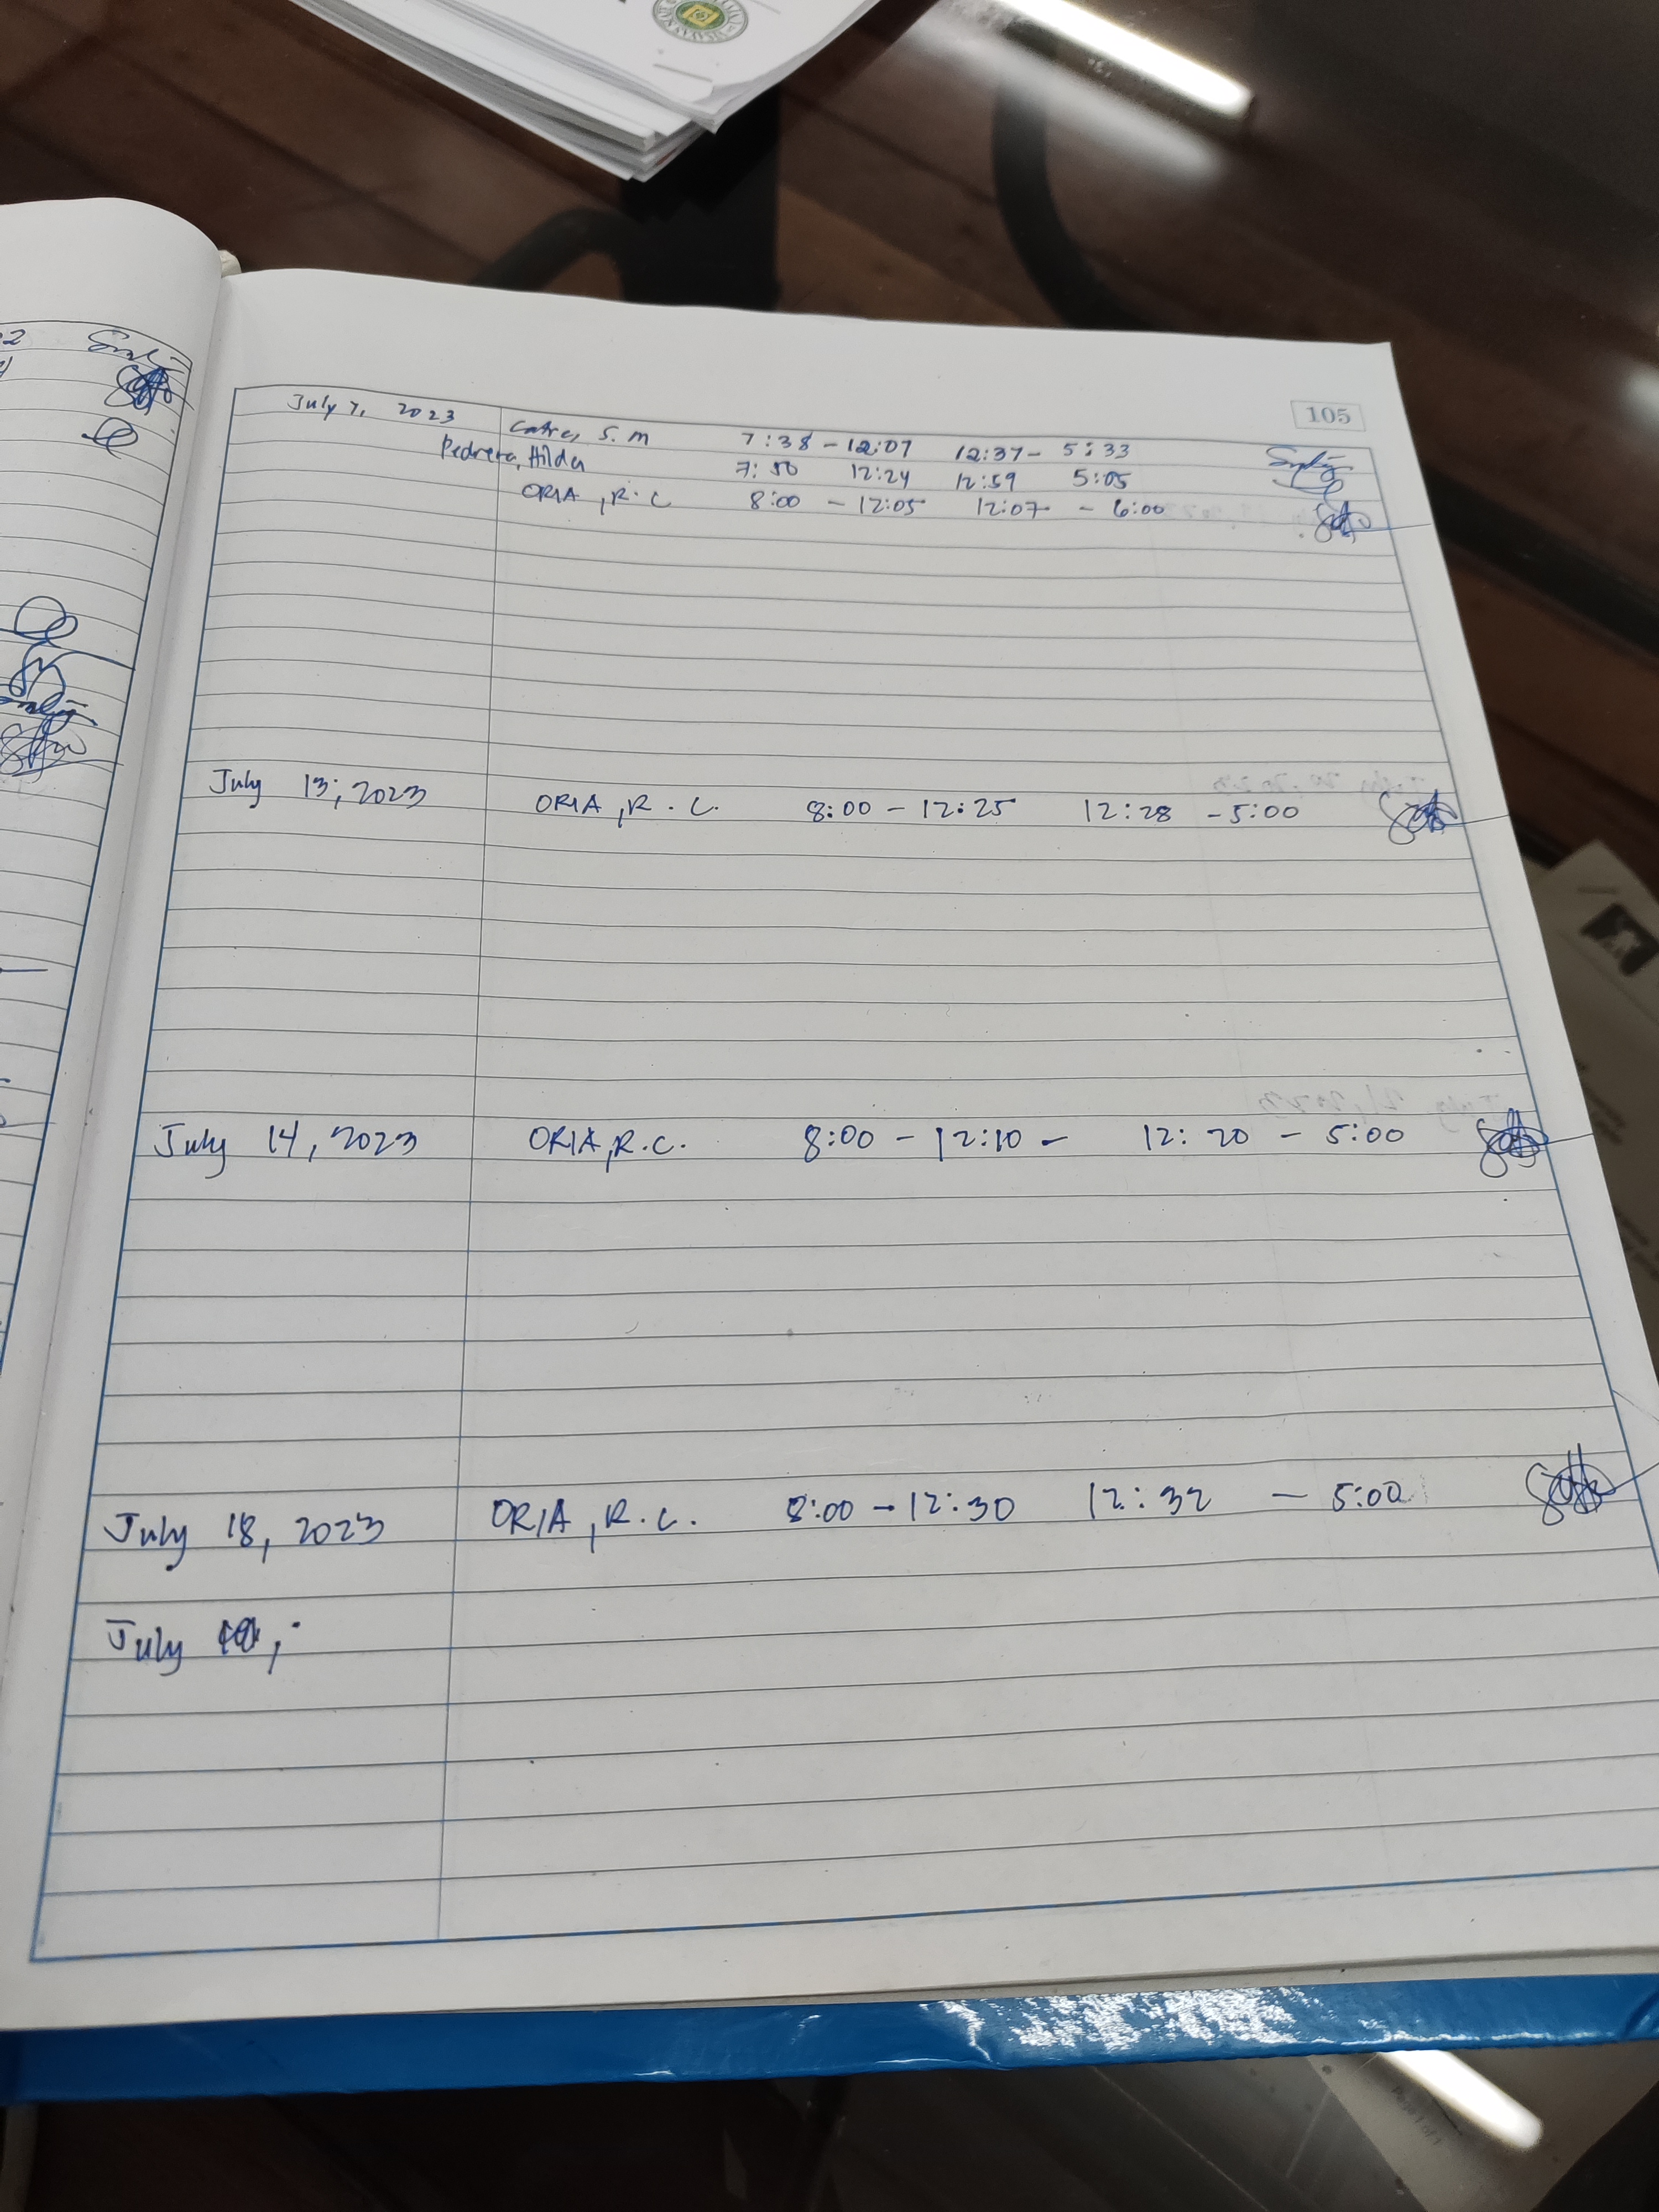 105
July 7, 2023 Catre, S. M 7:38 - 12:07 12:37 - 5:33
Pedrera, Hilda 7:50 12:24 12:59 5:05
ORIA, R. C 8:00 - 12:05 12:07 - 6:00
July 13, 2023 ORIA, R. C. 8:00 - 12:25 12:28 - 5:00
July 14, 2023 ORIA, R.C. 8:00 - 12:10 - 12:20 - 5:00
July 18, 2023 ORIA, R.C. 8:00 - 12:30 12:32 - 5:00
July